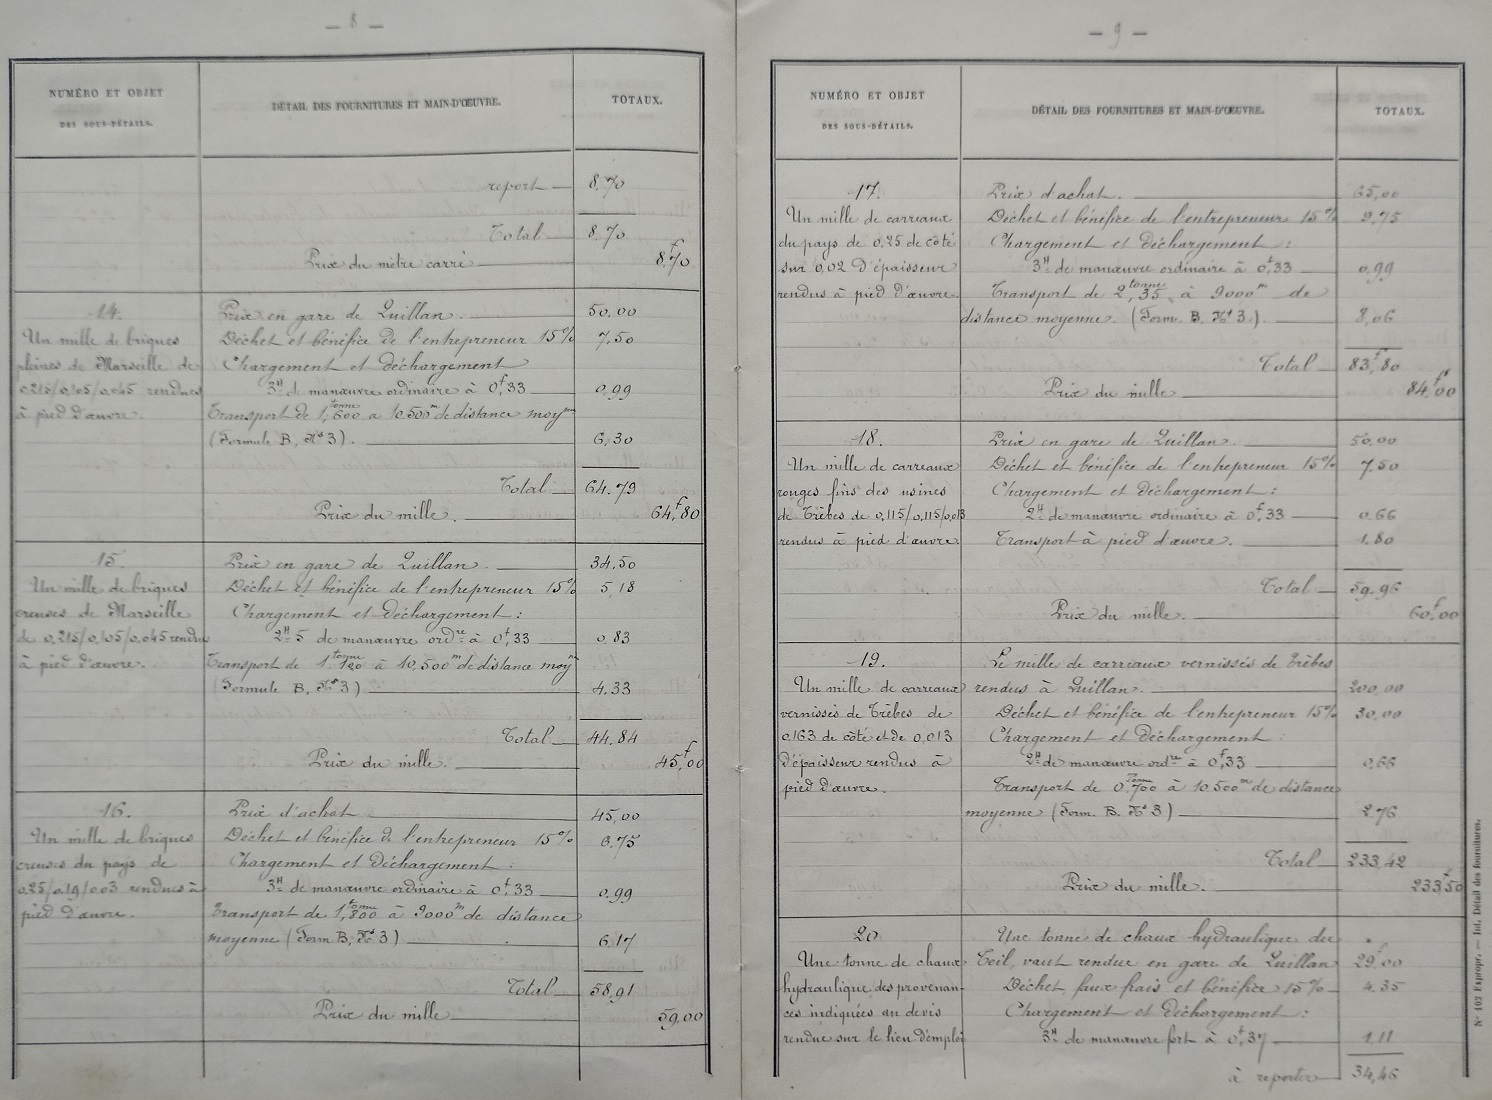 — 8 —
NUMÉRO ET OBJET
DES SOUS-DÉTAILS.
DÉTAIL DES FOURNITURES ET MAIN-D'ŒUVRE.
TOTAUX.
report — 8.70
Total — 8.70
Prix du mètre carré — 8f,70
14.
Un mille de briques
pleines de Marseille de
0,215/0,105/0,045 rendues
à pied d'œuvre.
Prix en gare de Quillan. — 50.00
Déchet et bénéfice de l'entrepreneur 15% 7.50
Chargement et déchargement
3H de manœuvre ordinaire à 0f,33 — 0,99
Transport de 1tonne,600 à 10.500m de distance moyne
(Formule B, No 3). — 6,30
Total — 64.79
Prix du mille. — 64f,80
15.
Un mille de briques
creuses de Marseille
de 0,215/0,105/0,045 rendus
à pied d'œuvre.
Prix en gare de Quillan. — 34.50
Déchet et bénéfice de l'entrepreneur 15% 5,18
Chargement et déchargement :
2H5 de manœuvre ordre à 0f,33 — 0,83
Transport de 1tonne,120 à 10,500m de distance moyne
(Formule B, No 3) — 4.33
Total — 44.84
Prix du mille. — 45f,00
16.
Un mille de briques
creuses du pays de
0,25/0,19/0,03 rendues à
pied d'œuvre.
Prix d'achat — 45,00
Déchet et bénéfice de l'entrepreneur 15% 6.75
Chargement et déchargement :
3H de manœuvre ordinaire à 0f,33 — 0,99
Transport de 1tonne,800 à 9000m de distance
moyenne (Form B, No 3) — 6,17
Total — 58,91
Prix du mille — 59,00
— 9 —
NUMÉRO ET OBJET
DES SOUS-DÉTAILS.
DÉTAIL DES FOURNITURES ET MAIN-D'ŒUVRE.
TOTAUX.
17.
Un mille de carreaux
du pays de 0,25 de côté
sur 0,02 d'épaisseur
rendus à pied d'œuvre.
Prix d'achat. — 65,00
Déchet et bénéfice de l'entrepreneur 15% 9,75
Chargement et déchargement :
3H de manœuvre ordinaire à 0f,33 — 0,99
Transport de 2tonne,35 à 9000m de
distance moyenne. (Form. B. No 3.) — 8,06
Total — 83f,80
Prix du mille — 84f,00
18.
Un mille de carreaux
rouges fins des usines
de Trèbes de 0,115/0,115/0,013
rendus à pied d'œuvre.
Prix en gare de Quillan. — 50,00
Déchet et bénéfice de l'entrepreneur 15% 7.50
Chargement et déchargement :
2H de manœuvre ordinaire à 0f,33 — 0,66
Transport à pied d'œuvre. — 1.80
Total — 59,96
Prix du mille. — 60f,00
19.
Un mille de carreaux
vernissés de Trèbes de
0,163 de côté et de 0,013
d'épaisseur rendus à
pied d'œuvre.
Le mille de carreaux vernissés de Trèbes
rendus à Quillan. — 200,00
Déchet et bénéfice de l'entrepreneur 15% 30,00
Chargement et déchargement
2H de manœuvre ordre à 0f,33 — 0,66
Transport de 0Tonne,700 à 10.500m de distance
moyenne (Form. B. No 3) — 2.76
Total — 233,42
Prix du mille. — 233f,50
20
Une tonne de chaux
hydraulique des provenan-
ces indiquées au devis
rendue sur le lieu d'emploi
Une tonne de chaux hydraulique du
Teil, vaut rendue en gare de Quillan 29f,00
Déchet faux frais et bénéfice 15% — 4.35
Chargement et déchargement :
3H de manœuvre fort à 0f,37 — 1.11
à reporter — 34,46
No 102 Expropr. — Int. Détail des fournitures.